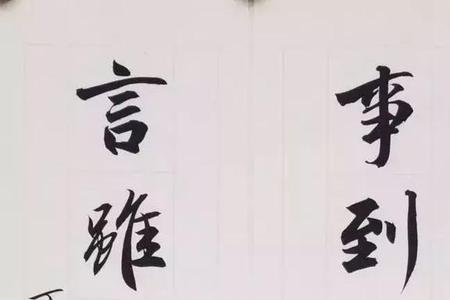 事到
言雖